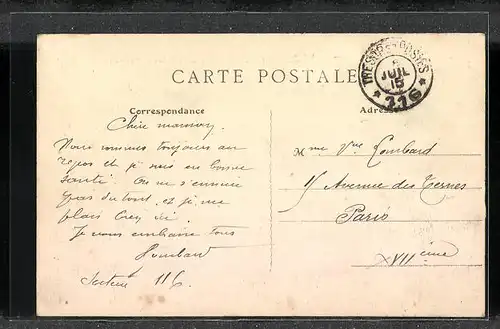 CARTE POSTALE
TRESOR ET POSTES
JUIL
15
* 116 *
Correspondance
Adresse
Chère maman,
Nous sommes toujours au
repos et je suis en bonne
santé. On ne s'ennuie
pas du tout, et je me
plais bien ici.
Je vous embrasse tous
Lombard
Secteur 116
Mme Vve Lombard
Avenue des Ternes
Paris
XVIIème